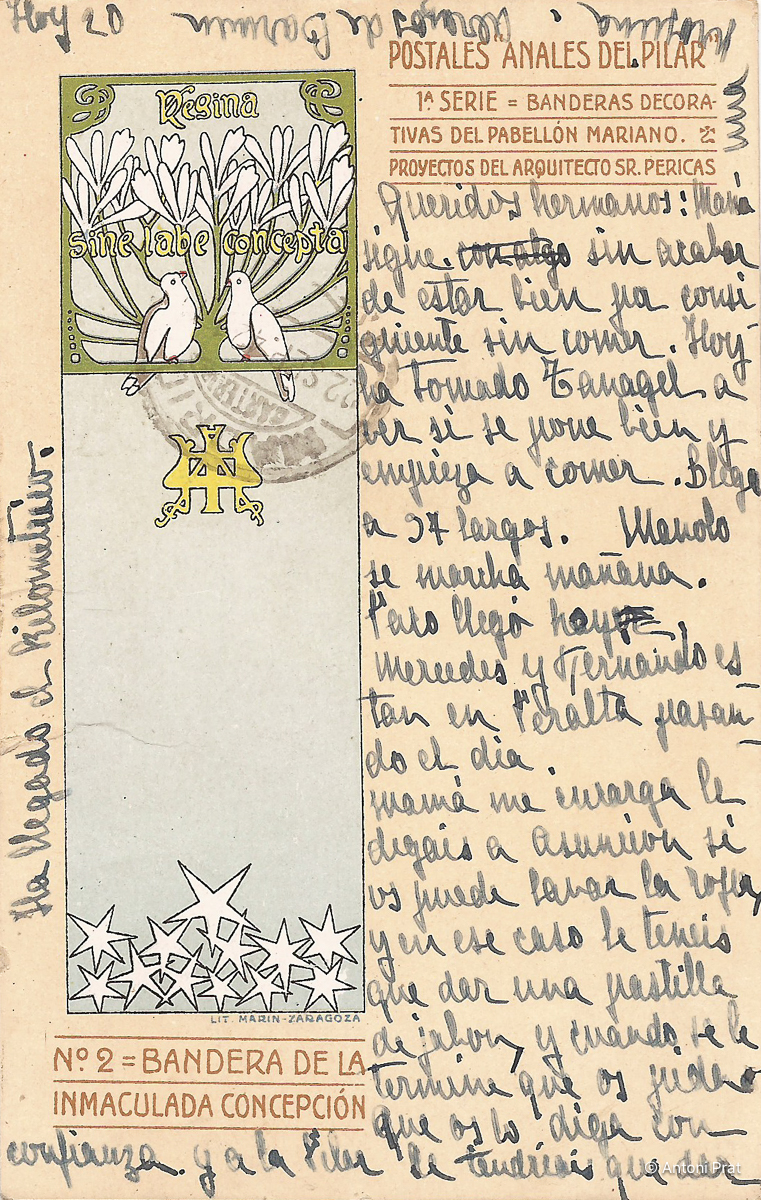 Hoy 20
Abrazos de Carmen
POSTALES "ANALES DEL PILAR"
1ª SERIE = BANDERAS DECORA-
TIVAS DEL PABELLÓN MARIANO.
PROYECTOS DEL ARQUITECTO SR. PERICAS
Regina
sine labe concepta
Queridos hermanos: Mamá
sigue con algo sin acabar
de estar bien por consi
guiente sin comer. Hoy
ha tomado Tanagel a
ver si se pone bien y
empieza a comer.
a 37 largos. Manolo
se marcha mañana.
Paco llegó hoy.
Mercedes y Fernando es
tan en Peralta pasan
do el dia
mamá me encarga le
digais a Asunción si
os puede lavar la ropa,
y en ese caso le teneis
que dar una pastilla
de jabon, y cuando se le
termine que os pida o
que os lo diga con
confianza. y a la Pilar le tendriais que dar
una
Ha llegado el Kilometrico.
LIT. MARIN-ZARAGOZA
Nº 2 = BANDERA DE LA
INMACULADA CONCEPCIÓN
© Antoni Prat